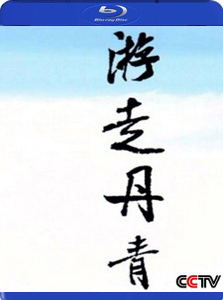 Blu-ray Disc
游走丹青
CCTV